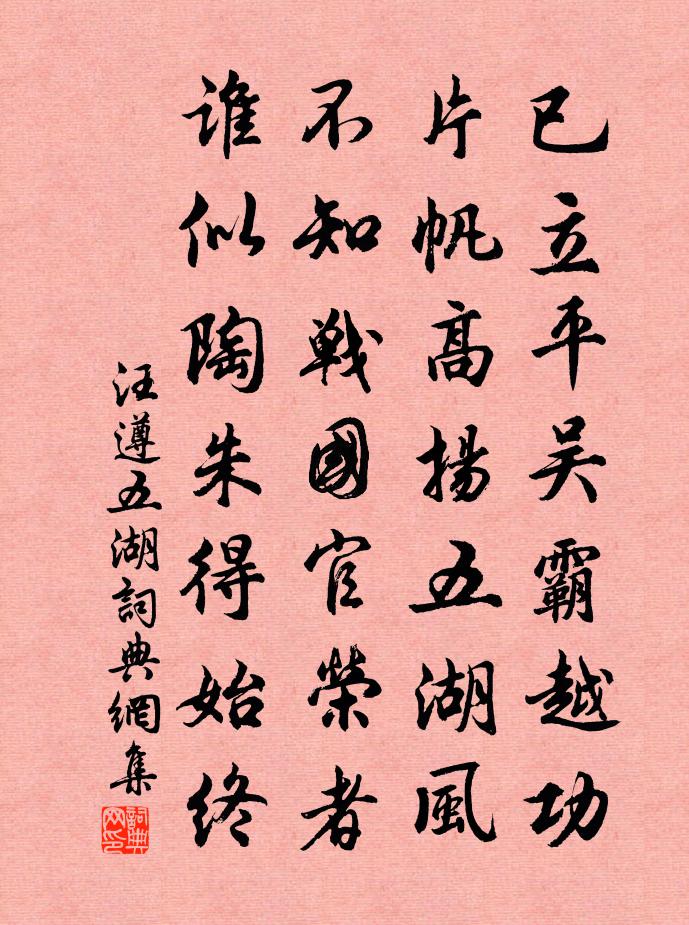 已立平吴霸越功
片帆高揚五湖風
不知戰國官榮者
誰似陶朱得始終
汪遵五湖詞典網集
詞典网印